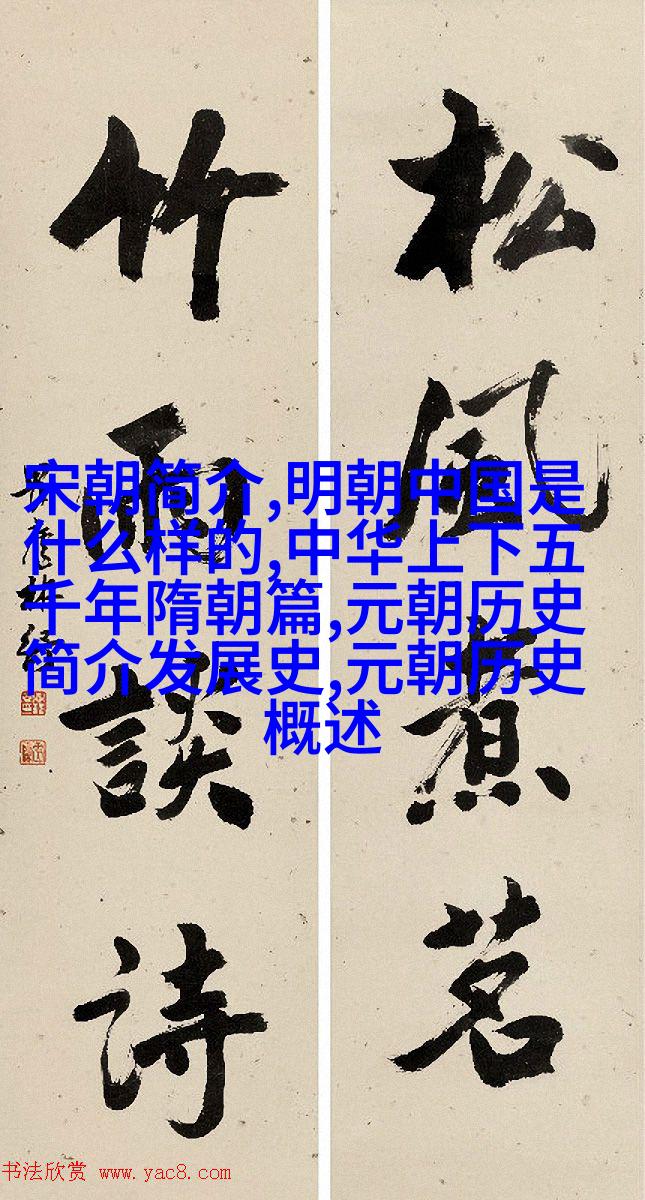 松風煮茗
竹雨談詩
宋朝简介,明朝中国是
什么样的,中华上下五
千年隋朝篇,元朝历史
简介发展史,元朝历史
概述
书法欣赏 www.yac8.com